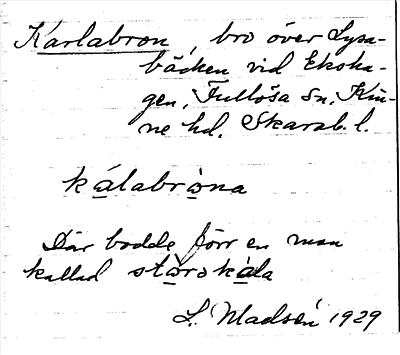 Karlabron, bro över Lysa-
bäcken vid Ekoha-
gen, Fullösa sn, Kin-
ne hd. Skarab. l.
kålabròna
Där bodde förr en man
kallad stòrokåla
L. Madsén 1929